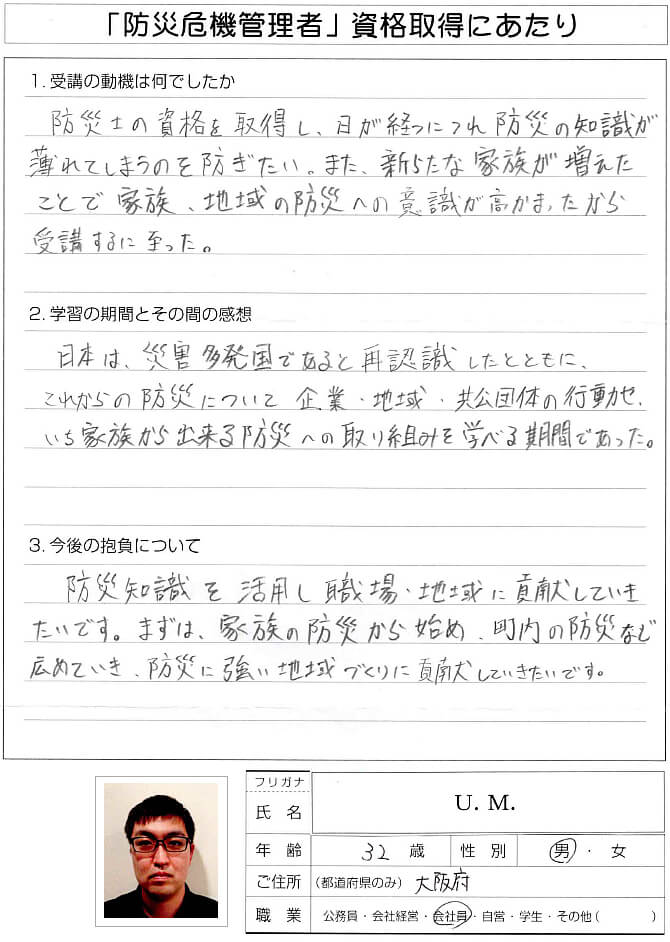 「防災危機管理者」資格取得にあたり
1. 受講の動機は何でしたか
防災士の資格を取得し、日が経つにつれ防災の知識が
薄れてしまうのを防ぎたい。また、新らたな家族が増えた
ことで家族、地域の防災への意識が高かまったから
受講するに至った。
2. 学習の期間とその間の感想
日本は、災害多発国であると再認識したとともに、
これからの防災について企業・地域・共公団体の行動や、
いち家族から出来る防災への取り組みを学べる期間であった。
3. 今後の抱負について
防災知識を活用し職場・地域に貢献していき
たいです。まずは、家族の防災から始め、町内の防災など
広めていき、防災に強い地域づくりに貢献していきたいです。
フリガナ
氏 名 U. M.
年 齢 32 歳 性 別 男 ・ 女
ご住所 (都道府県のみ) 大阪府
職 業 公務員・会社経営・会社員・自営・学生・その他( )